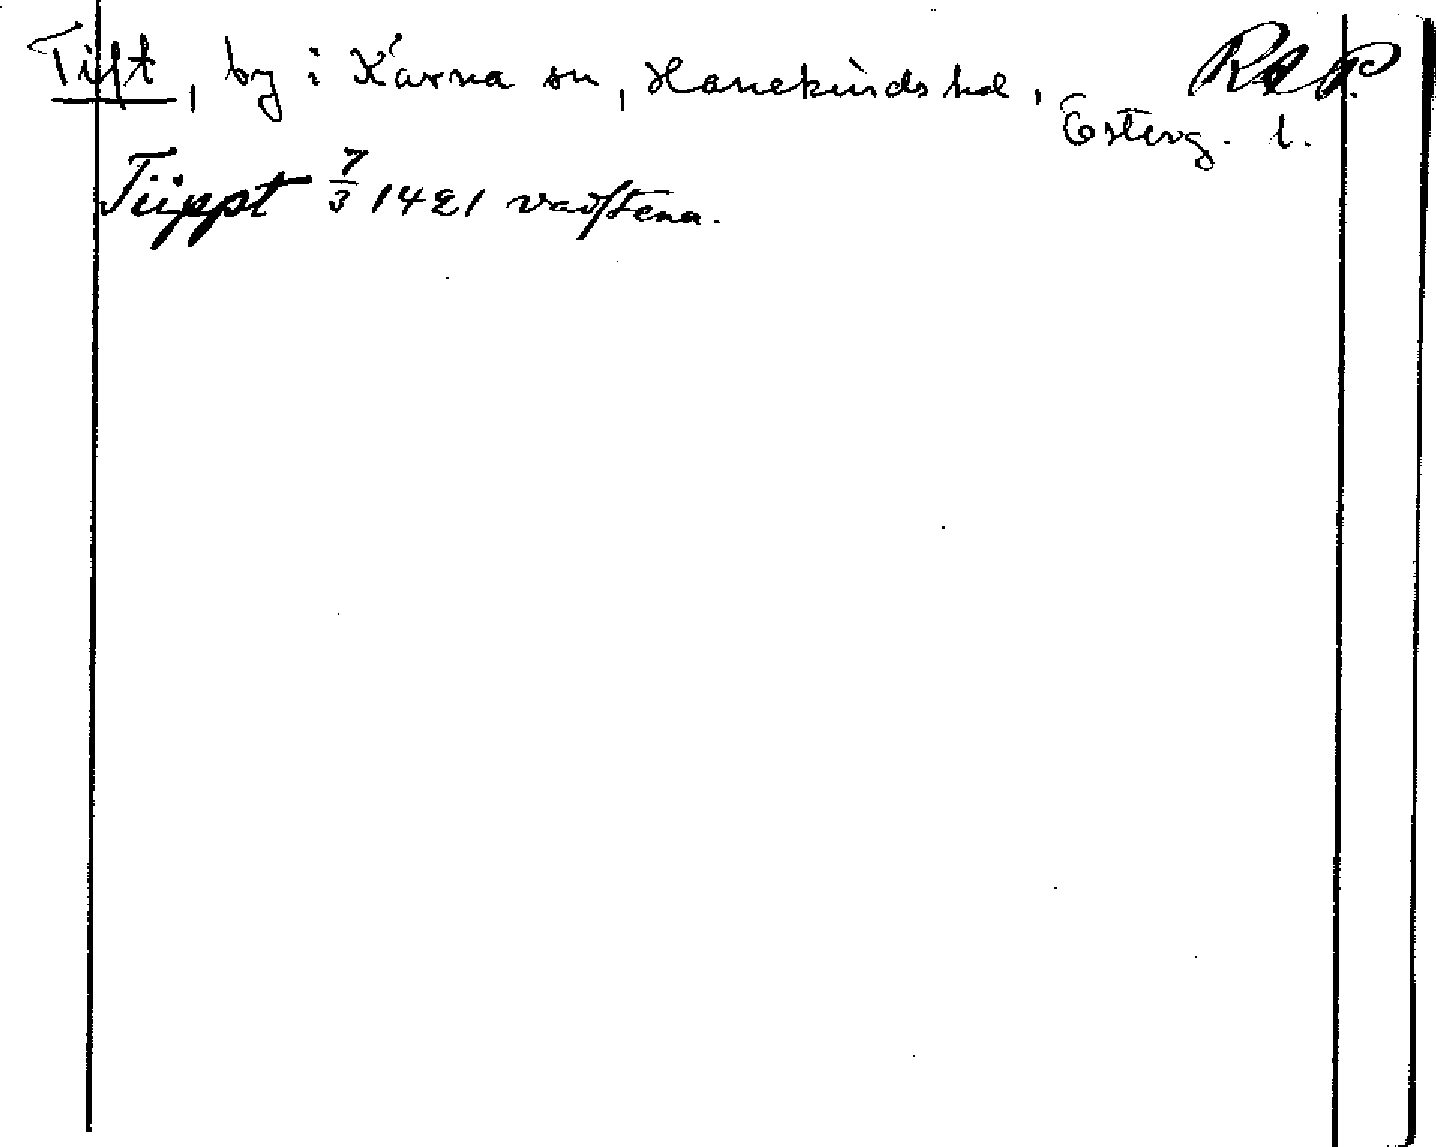 Tift, by i Kärna sn, Hanekinds hd, RAP.
Österg. l.
Tiippt 7/3 1421 vadstena.